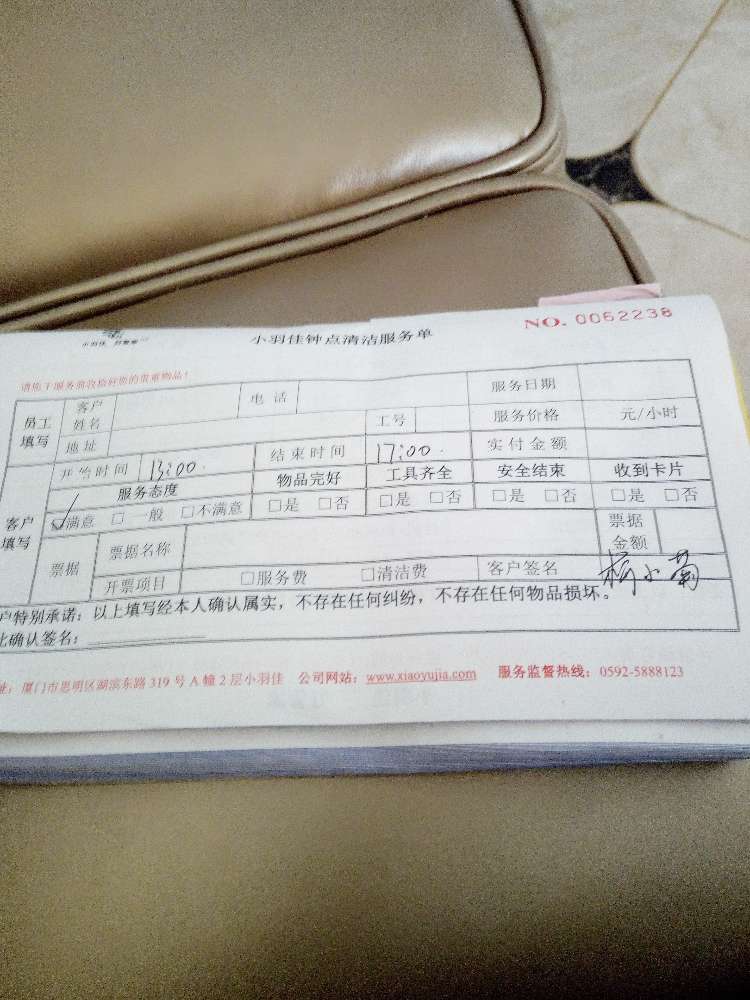 小羽佳钟点清洁服务单
NO. 0062238
请您于服务前收捡好您的贵重物品!
员工填写 客户姓名 电话 服务日期
地址 工号 服务价格 元/小时
开始时间 13:00 结束时间 17:00 实付金额
客户填写 服务态度 物品完好 工具齐全 安全结束 收到卡片
☑满意 □一般 □不满意 □是 □否 □是 □否 □是 □否 □是 □否
票据 票据名称 票据金额
开票项目 □服务费 □清洁费 客户签名 杨小菊
户特别承诺:以上填写经本人确认属实,不存在任何纠纷,不存在任何物品损坏。
此确认签名:
址:厦门市思明区湖滨东路 319 号 A 幢 2 层小羽佳 公司网站:www.xiaoyujia.com 服务监督热线:0592-5888123